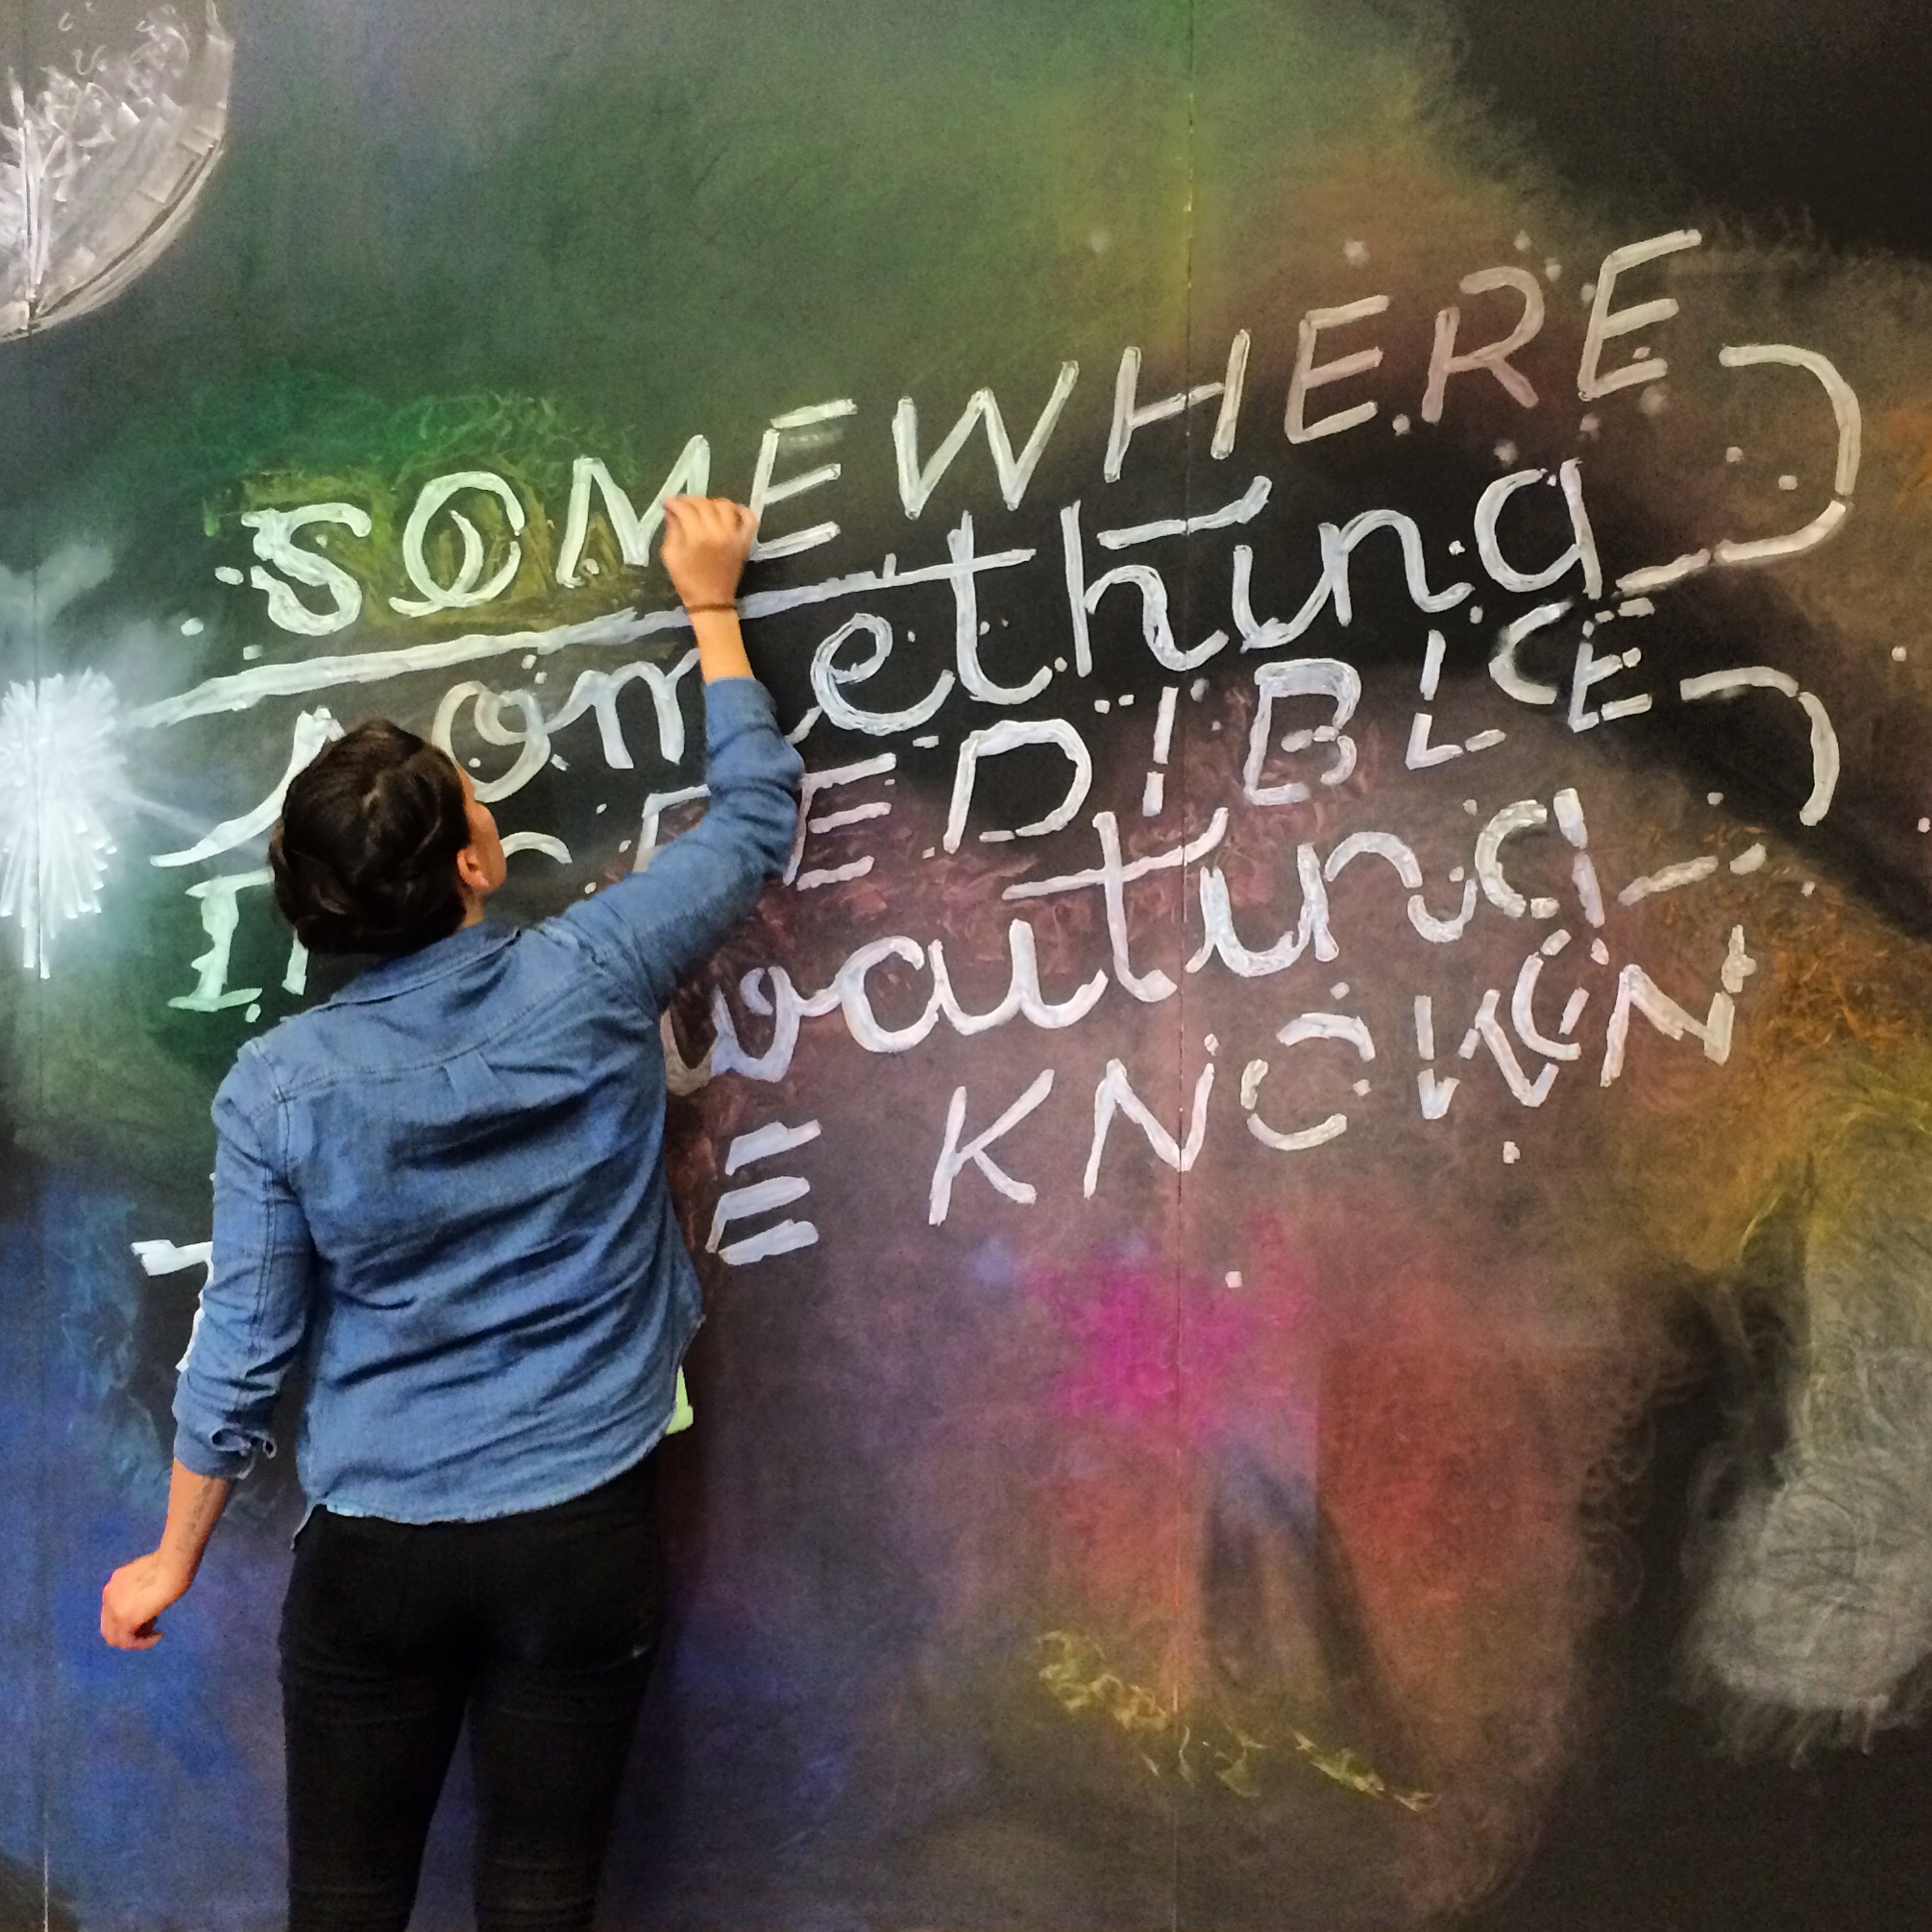 SOMEWHERE
something
INCREDIBLE
waiting
BE KNOWN